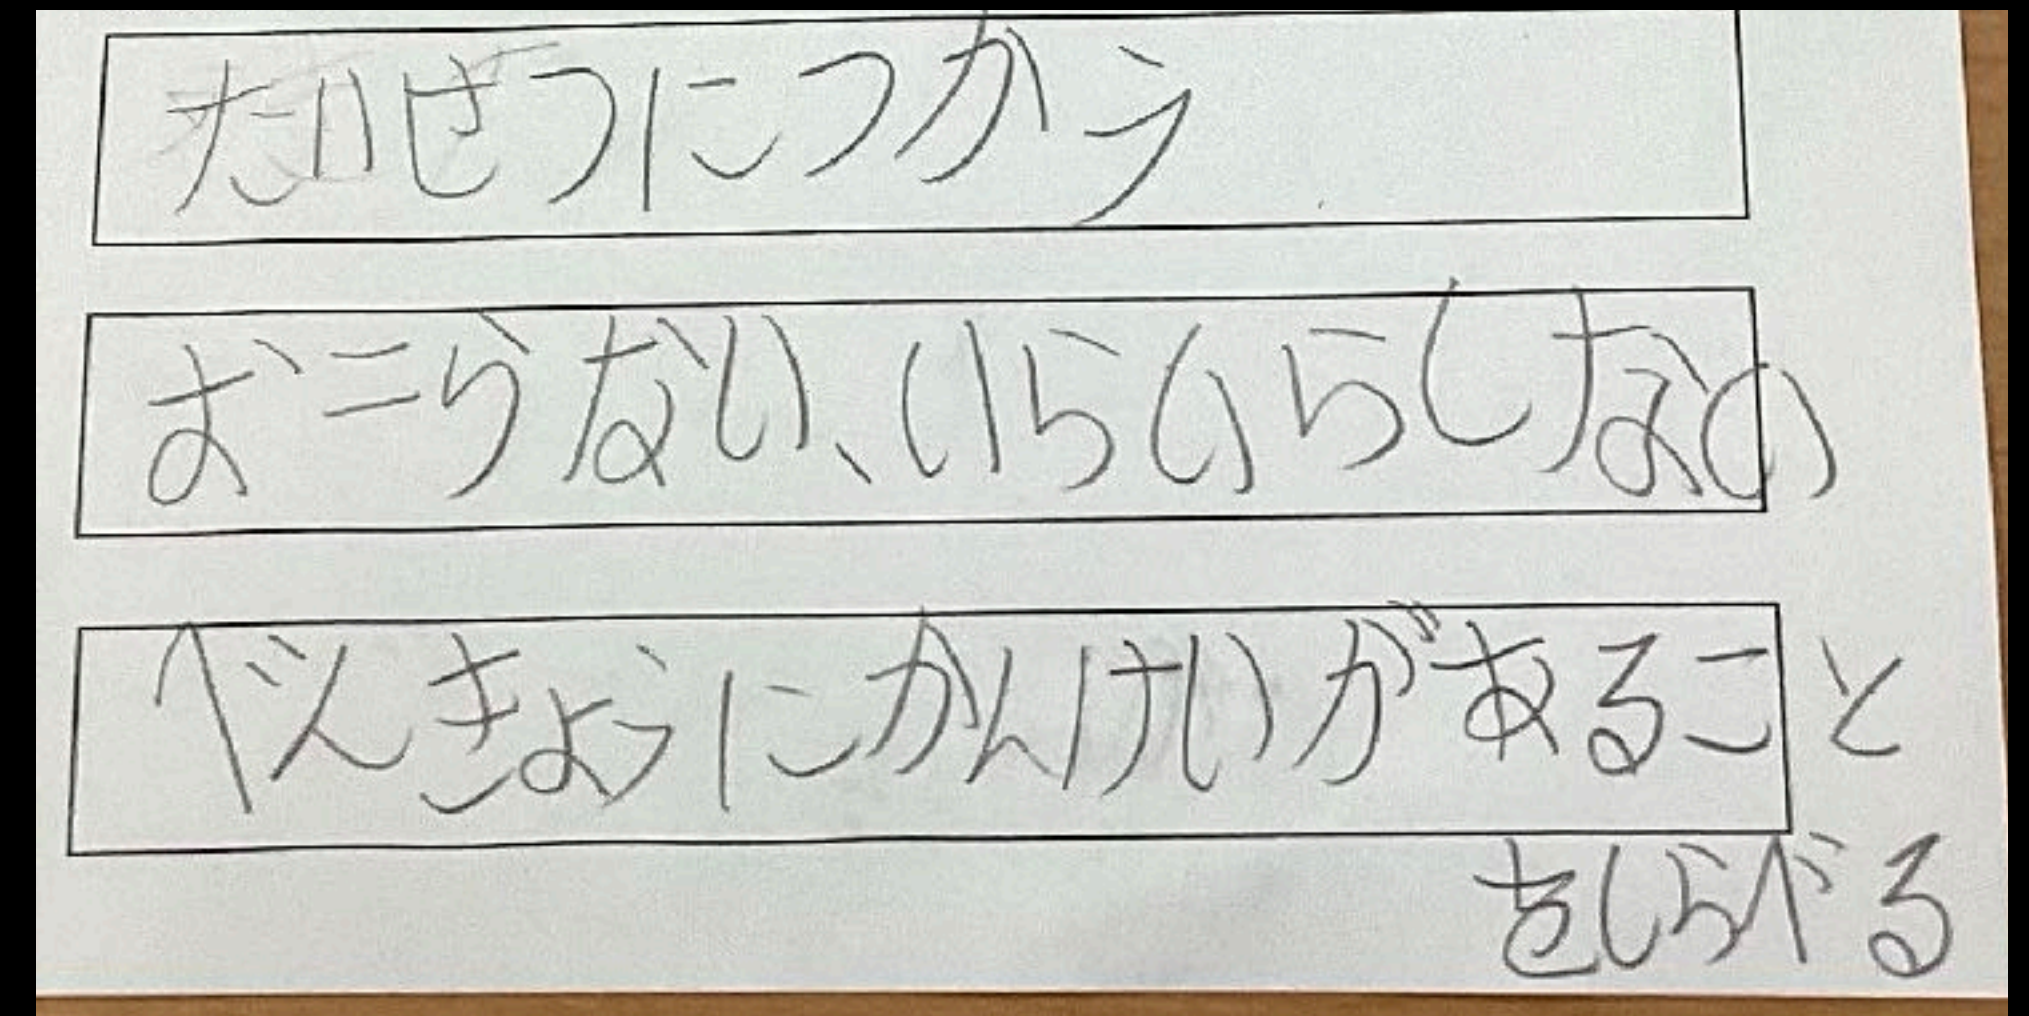 たいせつにつかう
おこらない、いらいらしない
べんきょうにかんけいがあること
をしらべる